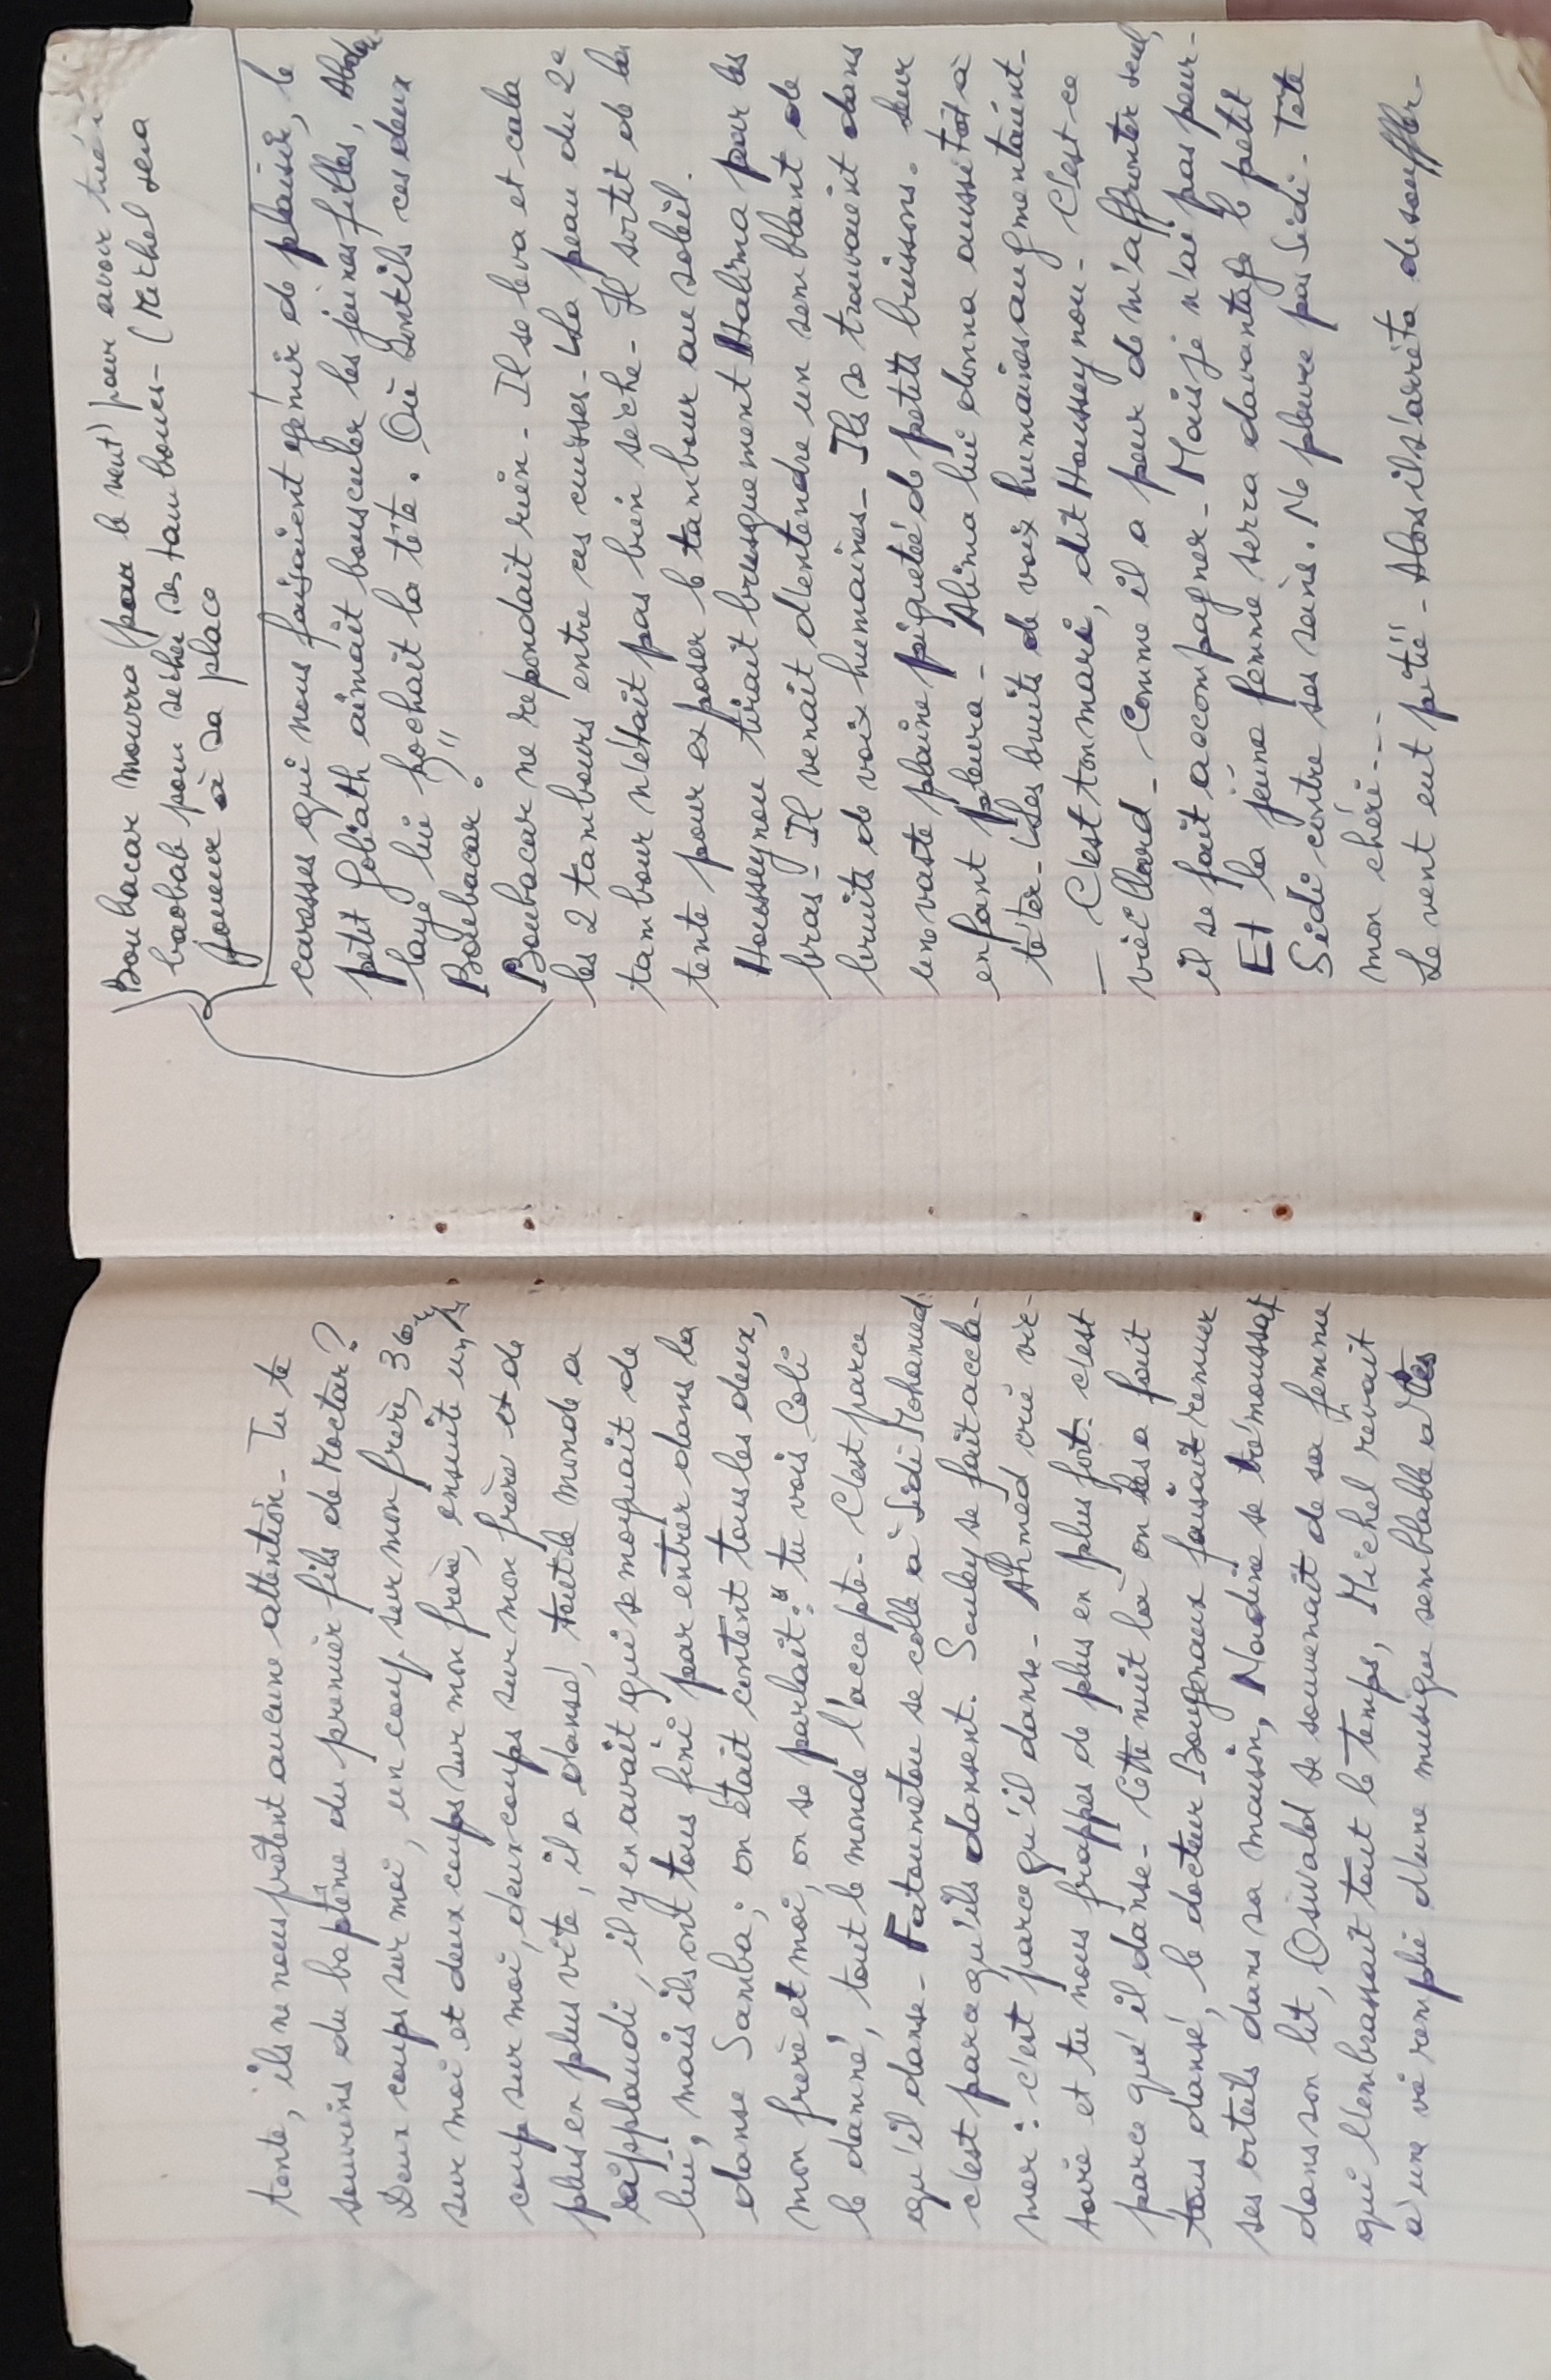 tente, ils ne nous prêtent aucune attention - Tu te
souviens du baptême du premier fils de Moctar?
Deux coups sur moi, un coup sur mon frère, 36
sur moi et deux coups sur mon frère, ensuite un
coup sur moi, deux coups sur mon frère et de
plus en plus vite, il a dansé, tout le monde a
applaudi, il y en avait qui se moquait de
lui, mais ils ont tous fini par entrer dans la
danse Samba; on était content tous les deux,
mon frère et moi, on se parlait: "tu vois Coli
le damné, tout le monde l'accepte - C'est parce
qu'il danse - Fatoumétou se colle à Sidi Mohamed
c'est parce qu'ils dansent. Souley se fait accla-
mer: c'est parce qu'il danse - Ahmed crie vic-
toire et tu nous frappes de plus en plus fort c'est
parce que il danse - Cette nuit là on les a fait
tous danser, le docteur Bougeaux faisait remuer
ses orteils dans sa maison, Nadine se trémoussait
dans son lit, Osivald se souvenait de sa femme
qui l'embrassait tout le temps, Michel rêvait
à une vie remplie d'une musique semblable à
Boubacar mourra par le vent) pour avoir tué
baobab pour sécher ses tambours - (Michel sera
joueur à sa place
caresses qui nous faisaient gémir de plaisir, le
petit Goliath aimait bousculer les jeunes filles, Abdou-
laye lui hochait la tête. Où sont-ils ces deux
Boubacar?"
Boubacar ne repondait rien - Il se leva et cala
les 2 tambours entre ces cuisses - La peau du 2e
tambour n'était pas bien sèche - Il sortit de la
tente pour exposer le tambour au soleil.
Housseynou tirait brusquement Halima par les
bras - Il venait d'entendre un semblant de
bruits de voix humaines - Ils se trouvaient dans
une vaste plaine paiquetée de petits buissons. Leur
enfant pleura - Alima lui donna aussitôt à
têter - Les bruits de voix humaines augmentaient -
— C'est ton mari, dit Housseynou - C'est ce
vieillard - Comme il a peur de m'affronter seul,
il se fait accompagner - Mais je n'ai pas peur -
Et la jeune femme serra davantage le petit
Sidi contre ses seins. Ne pleure pas Sidi - Tête
mon chéri - - -
Le vent eut pitié - Alors il s'arrêta de souffler -